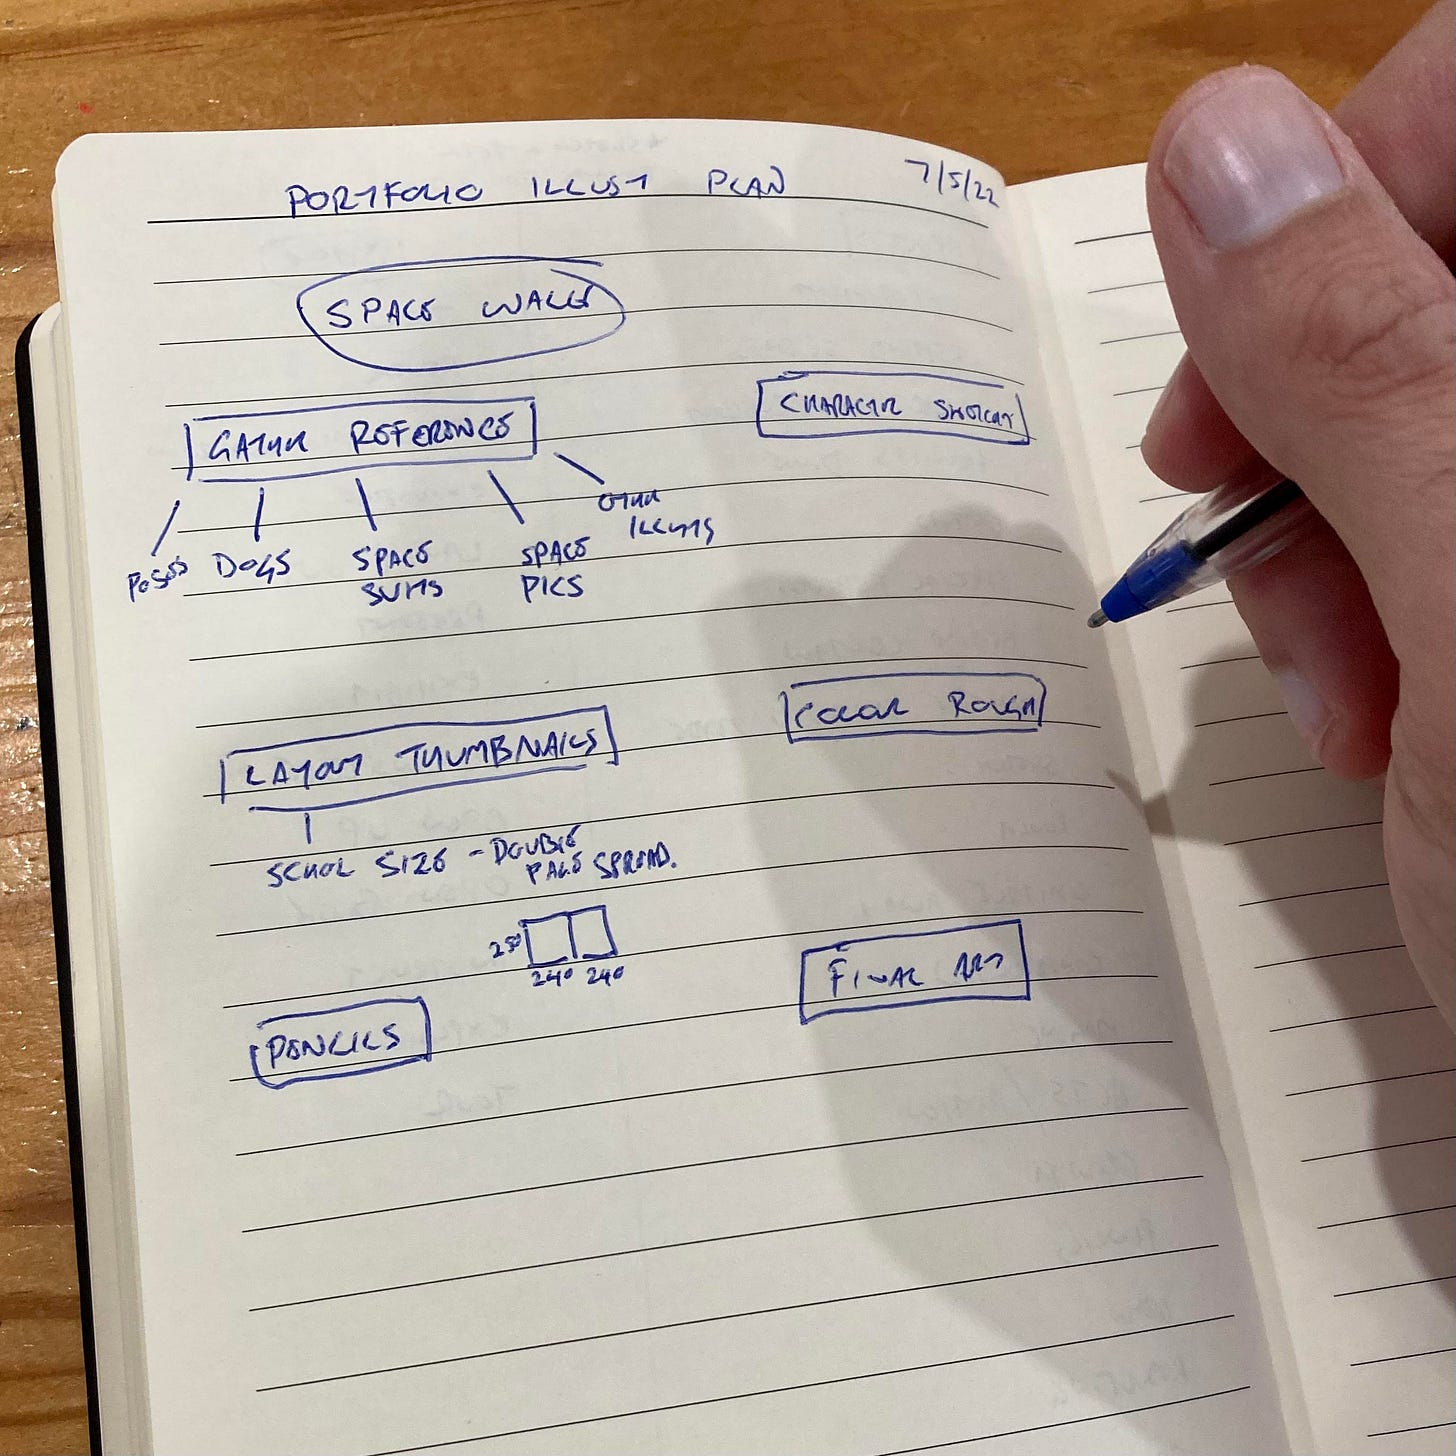 PORTFOLIO ILLUST PLAN 7/5/22
SPACE WALK
GATHER REFERENCE
POSES
DOGS
SPACE
SUITS
SPACE
PICS
OTHER
ILLUSTS
CHARACTER SKETCH
LAYOUT THUMBNAILS
SCHOL SIZE - DOUBLE
PAGE SPREAD.
250
240 240
COLOUR ROUGH
PENCILS
FINAL ART